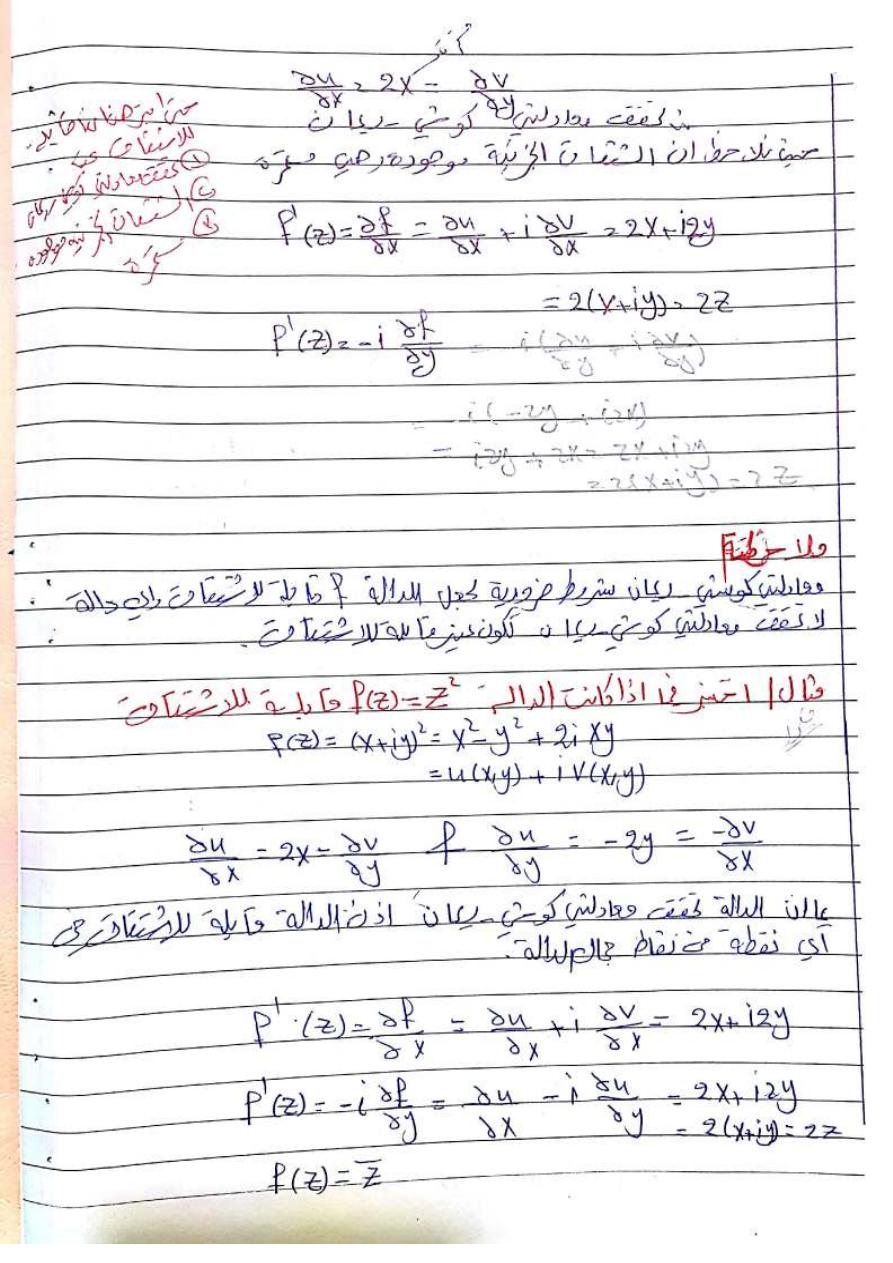 ∂u/∂x = 2x = ∂v/∂y
تحققت معادلتي كوشي - ريمان
حيث نلاحظ ان المشتقات الجزئية موجودة وهي مستمرة
للاشتقاق
① تحققت معادلتي كوشي ريمان
② المشتقات الجزئية موجودة
③ مستمرة
f'(z) = ∂f/∂x = ∂u/∂x + i ∂v/∂x = 2x + i2y
= 2(x+iy) = 2z
f'(z) = -i ∂f/∂y = i(∂u/∂y + i ∂v/∂y)
= i(-2y + i2x)
= i2y + 2x = 2x + i2y
= 2(x+iy) = 2z
ملاحظة
معادلتي كوشي - ريمان شروط ضرورية لجعل الدالة f قابلة للاشتقاق واي دالة
لا تحقق معادلتي كوشي - ريمان تكون غير قابلة للاشتقاق.
مثال / اختبر فيما اذا كانت الدالة f(z) = z² قابلة للاشتقاق
f(z) = (x+iy)² = x² - y² + 2i xy
= u(x,y) + i v(x,y)
∂u/∂x = 2x = ∂v/∂y f ∂u/∂y = -2y = -∂v/∂x
بما ان الدالة تحقق معادلتي كوشي - ريمان اذن الدالة قابلة للاشتقاق في
أي نقطة من نقاط مجال الدالة.
f'(z) = ∂f/∂x = ∂u/∂x + i ∂v/∂x = 2x + i2y
f'(z) = -i ∂f/∂y = ∂u/∂x - i ∂u/∂y = 2x + i2y
= 2(x+iy) = 2z
f(z) = z̅